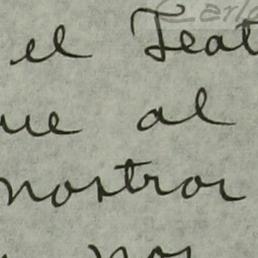 Carlo
el Teat
ue al
nostros
nos